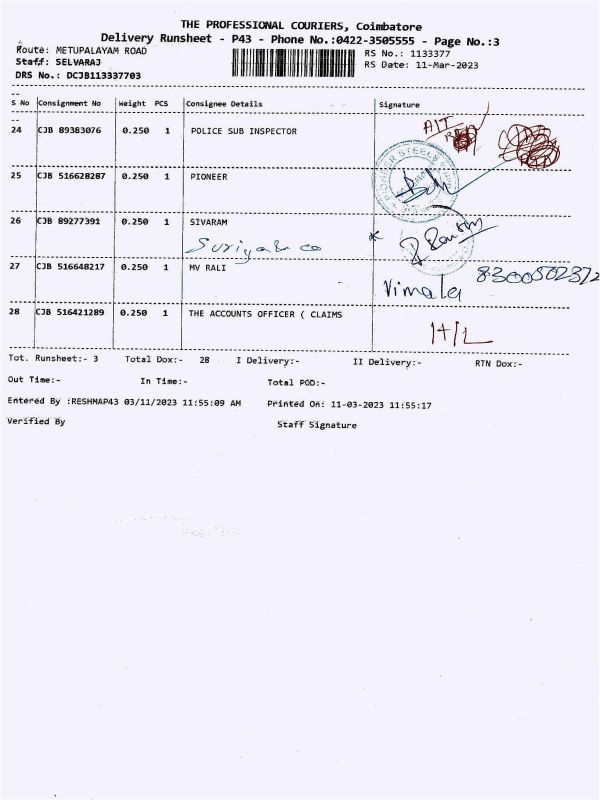 THE PROFESSIONAL COURIERS, Coimbatore
Delivery Runsheet - P43 - Phone No.:0422-3505555 - Page No.:3
Route: METUPALAYAM ROAD RS No.: 1133377
Staff: SELVARAJ RS Date: 11-Mar-2023
DRS No.: DCJB113337703
S No Consignment No Weight PCS Consignee Details Signature
24 CJB 89383076 0.250 1 POLICE SUB INSPECTOR
25 CJB 516628287 0.250 1 PIONEER
PIONEER STEEL
26 CJB 89277391 0.250 1 SIVARAM
Suriya & co *
27 CJB 516648217 0.250 1 MV RALI
Vimala 8300502372
28 CJB 516421289 0.250 1 THE ACCOUNTS OFFICER ( CLAIMS
Tot. Runsheet:- 3 Total Dox:- 28 I Delivery:- II Delivery:- RTN Dox:-
Out Time:- In Time:- Total POD:-
Entered By :RESHMAP43 03/11/2023 11:55:09 AM Printed On: 11-03-2023 11:55:17
Verified By Staff Signature